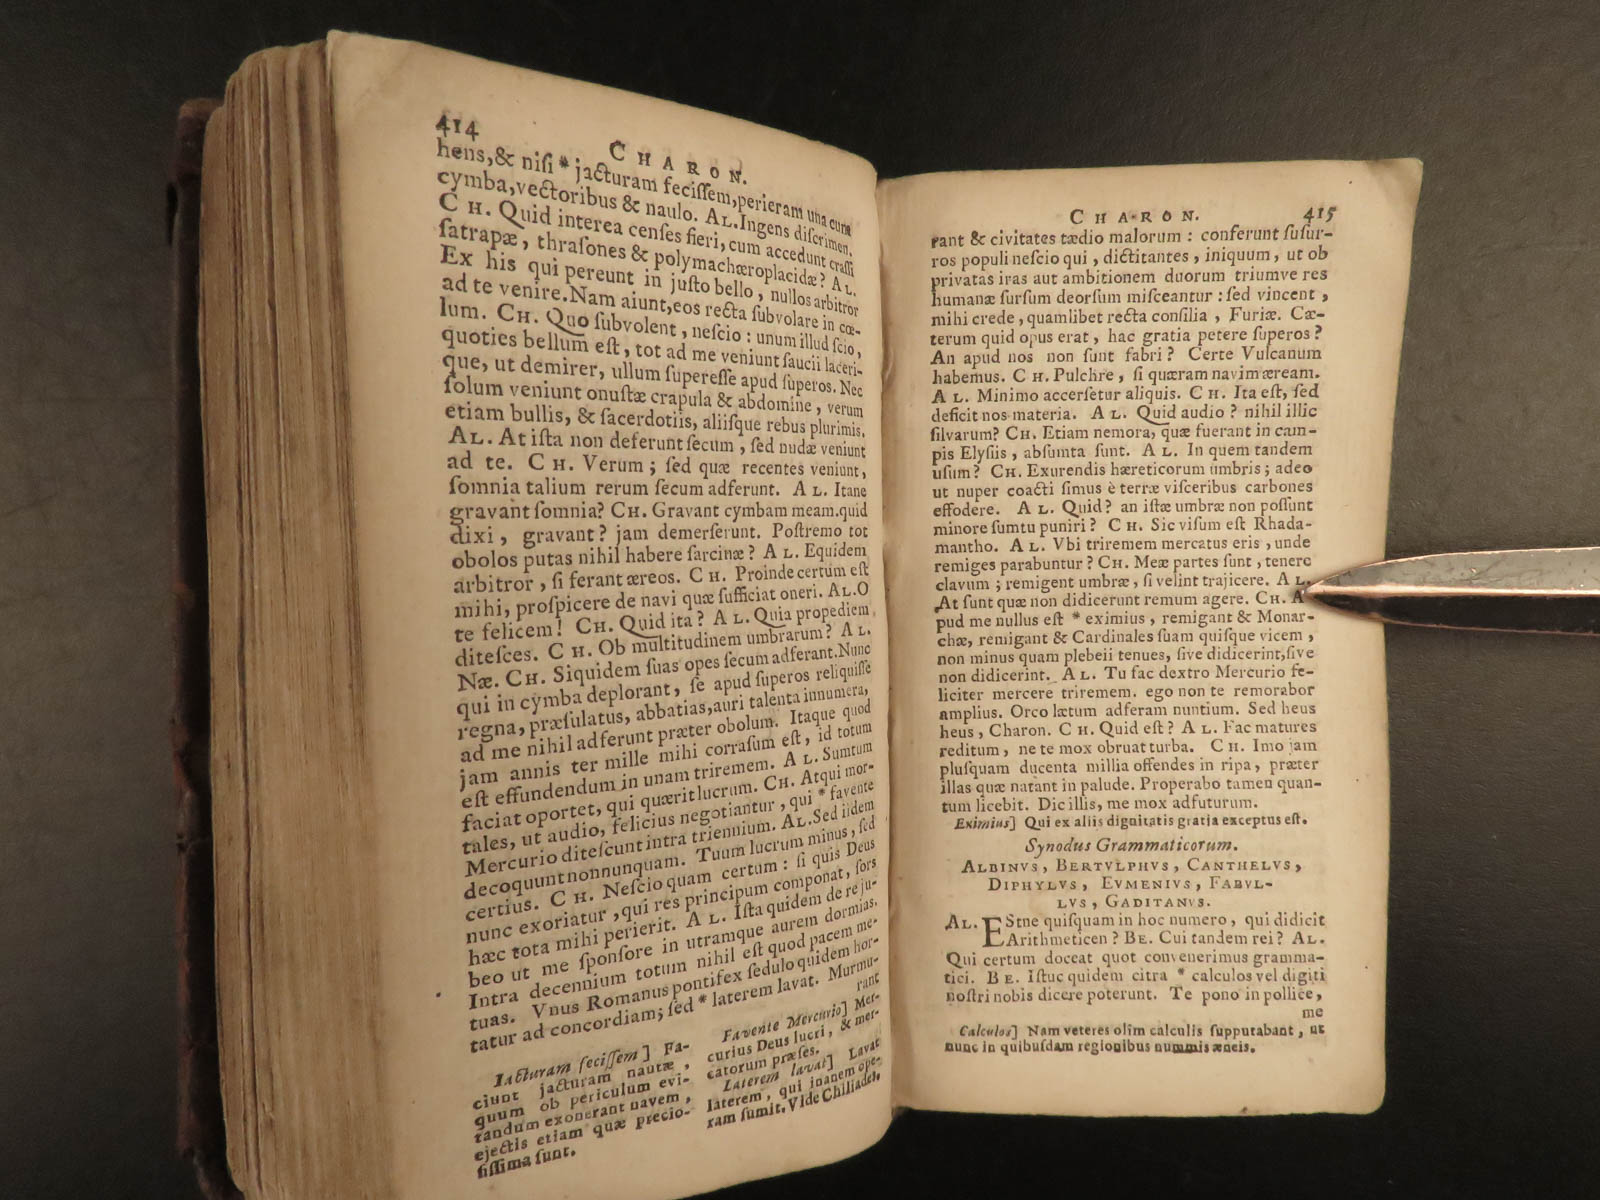 414
CHARON.
hens,& niſi * jacturam feciſſem,perieram una cum
cymba,vectoribus & naulo. AL.Ingens diſcrimen.
CH. Quid interea cenſes fieri,cum accedunt craſſi
ſatrapæ, thraſones & polymachæroplacidæ? AL.
Ex his qui pereunt in juſto bello, nullos arbitror
ad te venire.Nam aiunt,eos recta ſubvolare in cœ-
lum. CH. Quo ſubvolent, neſcio: unum illud ſcio,
quoties bellum eſt, tot ad me veniunt ſaucii laceri-
que, ut demirer, ullum ſupereſſe apud ſuperos. Nec
ſolum veniunt onuſtæ crapula & abdomine, verum
etiam bullis, & ſacerdotiis, aliiſque rebus plurimis.
AL. At iſta non deferunt ſecum, ſed nudæ veniunt
ad te. CH. Verum; ſed quæ recentes veniunt,
ſomnia talium rerum ſecum adferunt. AL. Itane
gravant ſomnia? CH. Gravant cymbam meam.quid
dixi, gravant? jam demerſerunt. Poſtremo tot
obolos putas nihil habere ſarcinæ? AL. Equidem
arbitror, ſi ferant æreos. CH. Proinde certum eſt
mihi, proſpicere de navi quæ ſufficiat oneri. AL.O
te felicem! CH. Quid ita? AL. Quia propediem
diteſces. CH. Ob multitudinem umbrarum? AL.
Næ. CH. Siquidem ſuas opes ſecum adferant.Nunc
qui in cymba deplorant, ſe apud ſuperos reliquiſſe
regna, præſulatus, abbatias,auri talenta innumera,
ad me nihil adferunt præter obolum. Itaque quod
jam annis ter mille mihi corraſum eſt, id totum
eſt effundendum in unam triremem. AL. Sumtum
faciat oportet, qui quærit lucrum. CH. Atqui mor-
tales, ut audio, felicius negotiantur, qui * favente
Mercurio diteſcunt intra triennium. AL.Sed iidem
decoquunt nonnunquam. Tuum lucrum minus, ſed
certius. CH. Neſcio quam certum: ſi quis Deus
nunc exoriatur, qui res principum componat, ſors
hæc tota mihi perierit. AL. Iſta quidem de re ju-
beo ut me ſponſore in utramque aurem dormias.
Intra decennium totum nihil eſt quod pacem me-
tuas. Vnus Romanus pontifex ſedulo quidem hor-
tatur ad concordiam; ſed * laterem lavat. Murmu-
rant
Iacturam feciſſem] Fa-
ciunt jacturam nautæ,
quum ob periculum evi-
tandum exonerant navem,
ejectis etiam quæ precio-
ſiſſima ſunt.
Favente Mercurio] Mer-
curius Deus lucri, & mer-
catorum præſes.
Laterem lavat] Lavat
laterem, qui inanem ope-
ram ſumit. Vide Chiliades.
CHARON.
415
rant & civitates tædio malorum: conferunt ſuſur-
ros populi neſcio qui, dictitantes, iniquum, ut ob
privatas iras aut ambitionem duorum triumve res
humanæ ſurſum deorſum miſceantur: ſed vincent,
mihi crede, quamlibet recta conſilia, Furiæ. Cæ-
terum quid opus erat, hac gratia petere ſuperos?
An apud nos non ſunt fabri? Certe Vulcanum
habemus. CH. Pulchre, ſi quæram navim æream.
AL. Minimo accerſetur aliquis. CH. Ita eſt, ſed
deficit nos materia. AL. Quid audio? nihil illic
ſilvarum? CH. Etiam nemora, quæ fuerant in cam-
pis Elyſiis, abſumta ſunt. AL. In quem tandem
uſum? CH. Exurendis hæreticorum umbris; adeo
ut nuper coacti ſimus è terræ viſceribus carbones
effodere. AL. Quid? an iſtæ umbræ non poſſunt
minore ſumtu puniri? CH. Sic viſum eſt Rhada-
mantho. AL. Vbi triremem mercatus eris, unde
remiges parabuntur? CH. Meæ partes ſunt, tenere
clavum; remigent umbræ, ſi velint trajicere. AL.
At ſunt quæ non didicerunt remum agere. CH. A-
pud me nullus eſt * eximius, remigant & Monar-
chæ, remigant & Cardinales ſuam quiſque vicem,
non minus quam plebeii tenues, ſive didicerint,ſive
non didicerint. AL. Tu fac dextro Mercurio fe-
liciter mercere triremem. ego non te remorabor
amplius. Orco lætum adferam nuntium. Sed heus
heus, Charon. CH. Quid eſt? AL. Fac matures
reditum, ne te mox obruat turba. CH. Imo jam
pluſquam ducenta millia offendes in ripa, præter
illas quæ natant in palude. Properabo tamen quan-
tum licebit. Dic illis, me mox adfuturum.
Eximius] Qui ex aliis dignitatis gratia exceptus eſt.
Synodus Grammaticorum.
ALBINVS, BERTVLPHVS, CANTHELVS,
DIPHYLVS, EVMENIVS, FABVL-
LVS, GADITANVS.
AL. EStne quiſquam in hoc numero, qui didicit
Arithmeticen? BE. Cui tandem rei? AL.
Qui certum doceat quot convenerimus gramma-
tici. BE. Iſtuc quidem citra * calculos vel digiti
noſtri nobis dicere poterunt. Te pono in pollice,
me
Calculos] Nam veteres olim calculis ſupputabant, ut
nunc in quibuſdam regionibus nummis æneis.